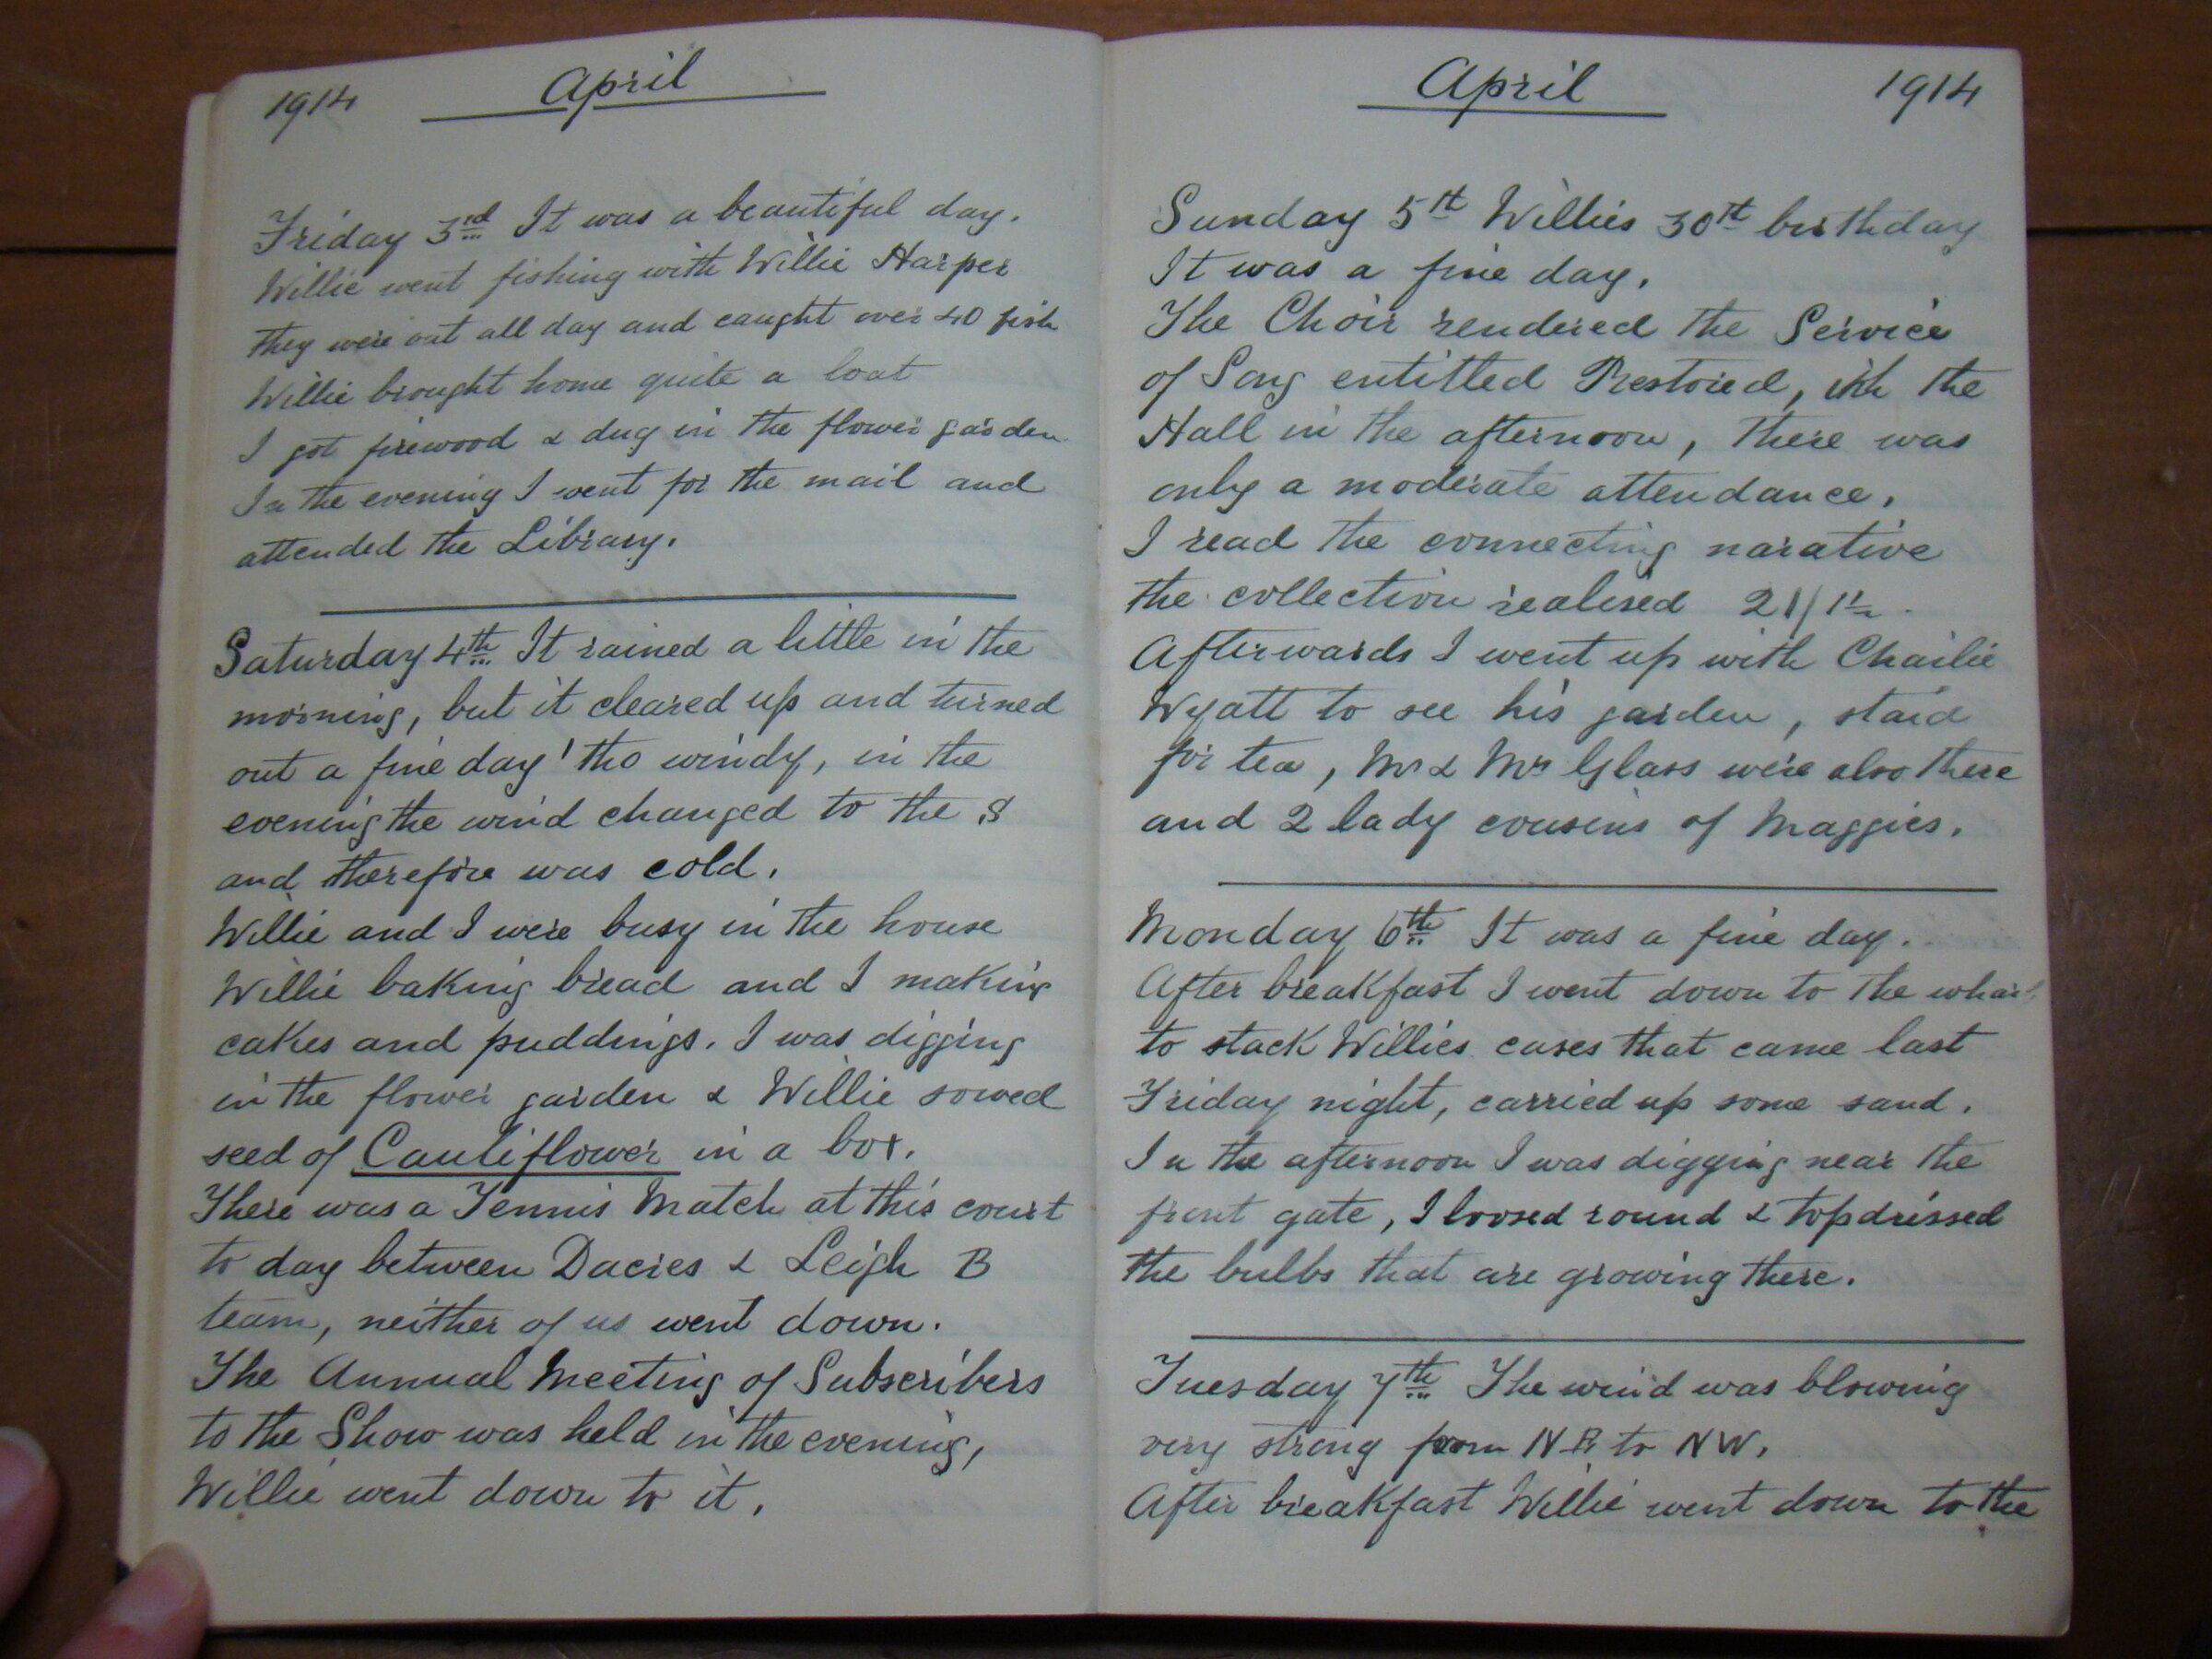 1914 April
Friday 3rd It was a beautiful day.
Willie went fishing with Willie Harper
they were out all day and caught over 40 fish
Willie brought home quite a loat
I got firewood & dug in the flower garden
In the evening I went for the mail and
attended the Library.
Saturday 4th It rained a little in the
morning, but it cleared up and turned
out a fine day 'tho windy, in the
evening the wind changed to the S
and therefore was cold.
Willie and I were busy in the house
Willie baking bread and I making
cakes and puddings. I was digging
in the flower garden & Willie sowed
seed of Cauliflower in a box.
There was a Tennis Match at this court
to day between Dacres & Leigh B
team, neither of us went down.
The Annual Meeting of Subscribers
to the Show was held in the evening,
Willie went down to it.
April 1914
Sunday 5th Willies 30th birthday
It was a fine day.
The Choir rendered the Service
of Song entitled Restored, in the
Hall in the afternoon, there was
only a moderate attendance.
I read the connecting narative
the collection realised 21/1½.
Afterwards I went up with Charlie
Wyatt to see his garden, staid
for tea, Mr & Mrs Glass were also there
and 2 lady cousins of Maggies.
Monday 6th It was a fine day.
After breakfast I went down to the wharf
to stack Willies cases that came last
Friday night, carried up some sand.
In the afternoon I was digging near the
front gate, I loosed round & topdressed
the bulbs that are growing there.
Tuesday 7th The wind was blowing
very strong from N.E. to NW.
After breakfast Willie went down to the